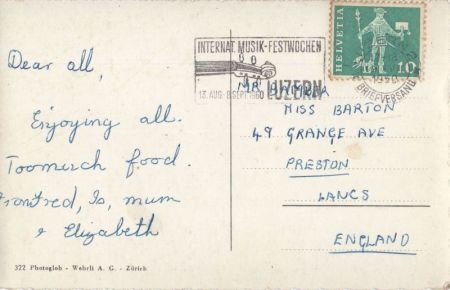 Dear all,
Enjoying all.
Toomuch food.
Is, mum
& Elizabeth
322 Photoglob - Wehrli A. G. - Zürich
INTERNAT. MUSIK-FESTWOCHEN
LUZERN
13. AUG.-8. SEPT. 1960
HELVETIA
10
BRIEFVERSAND
MR
MISS BARTON
49 GRANGE AVE
PRESTON
LANCS
ENGLAND